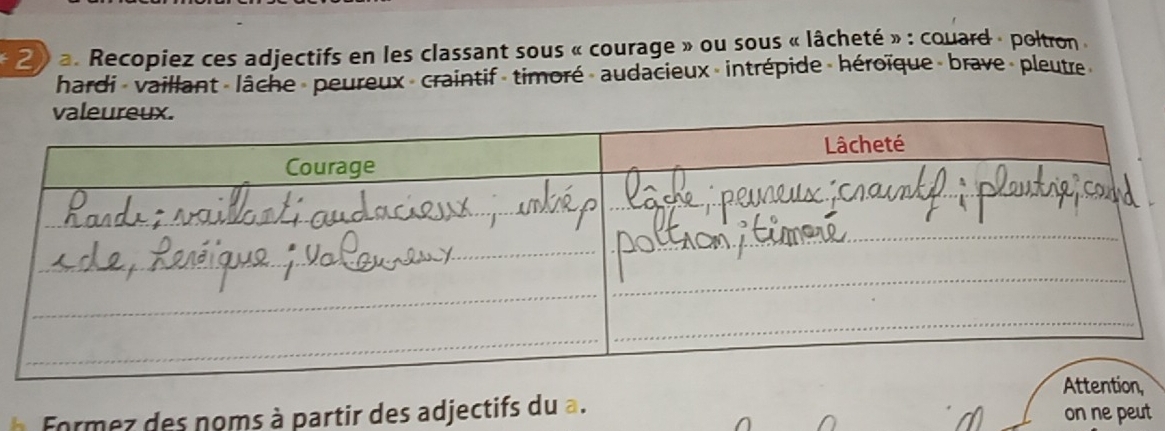 2 a. Recopiez ces adjectifs en les classant sous « courage » ou sous « lâcheté » : couard - poltron -
hardi - vaillant - lâche - peureux - craintif - timoré - audacieux - intrépide - héroïque - brave - pleutre -
valeureux.
Courage
Lâcheté
hardi ; vaillant ; audacieux ; intrép
ide, heroïque ; valeureux
lâche ; peureux ; craintif ; pleutre ; couard
poltron ; timoré
b. Formez des noms à partir des adjectifs du a.
Attention,
on ne peut